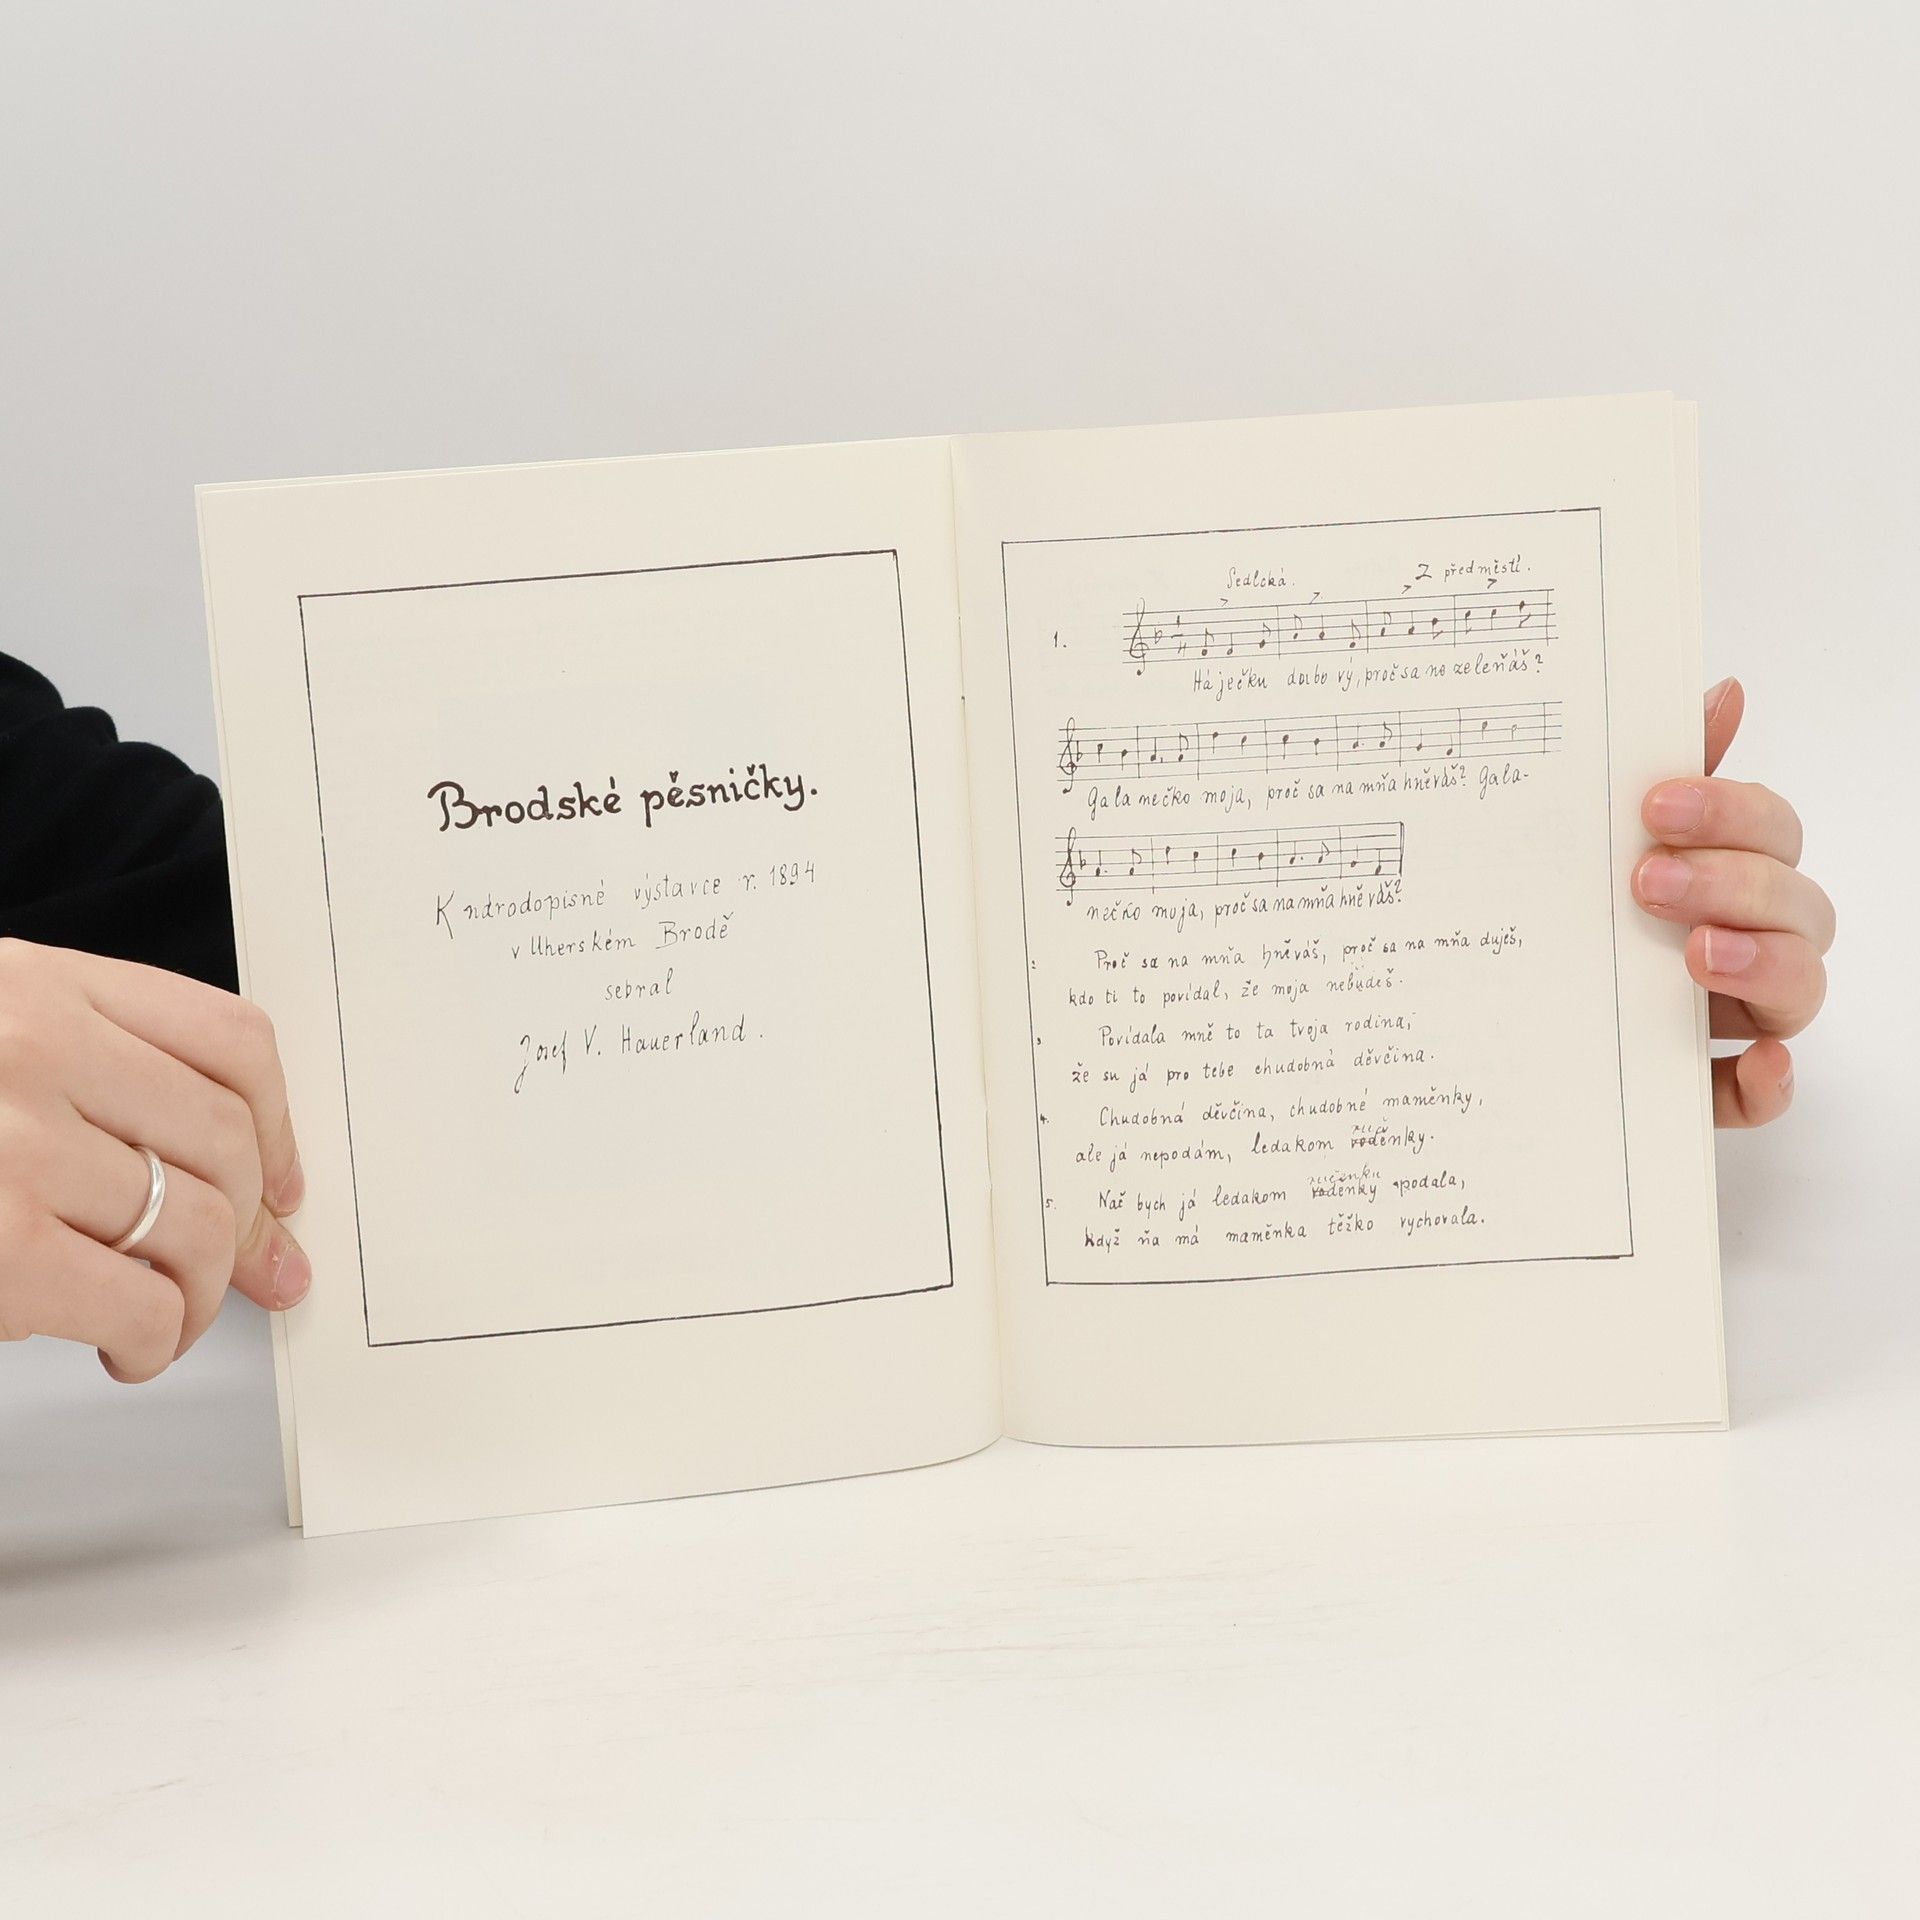 Brodské pěsničky.
K národopisné výstavce r. 1894
v Uherském Brodě
sebral
Josef V. Hauerland.
Sedlcká. Z předměstí.
1.
Háječku dubový, proč sa ne zeleňáš?
Galanečko moja, proč sa na mňa hněváš? Gala-
nečko moja, proč sa na mňa hněváš?
2. Proč sa na mňa hněváš, proč sa na mňa duješ,
kdo ti to povídal, že moja nebudeš.
3. Povídala mně to ta tvoja rodina,
že su já pro tebe chudobná děvčina.
4. Chudobná děvčina, chudobné maměnky,
ale já nepodám, ledakom roděnky.
ručenku
5. Nač bych já ledakom roděnky podala,
když ňa má maměnka těžko vychovala.